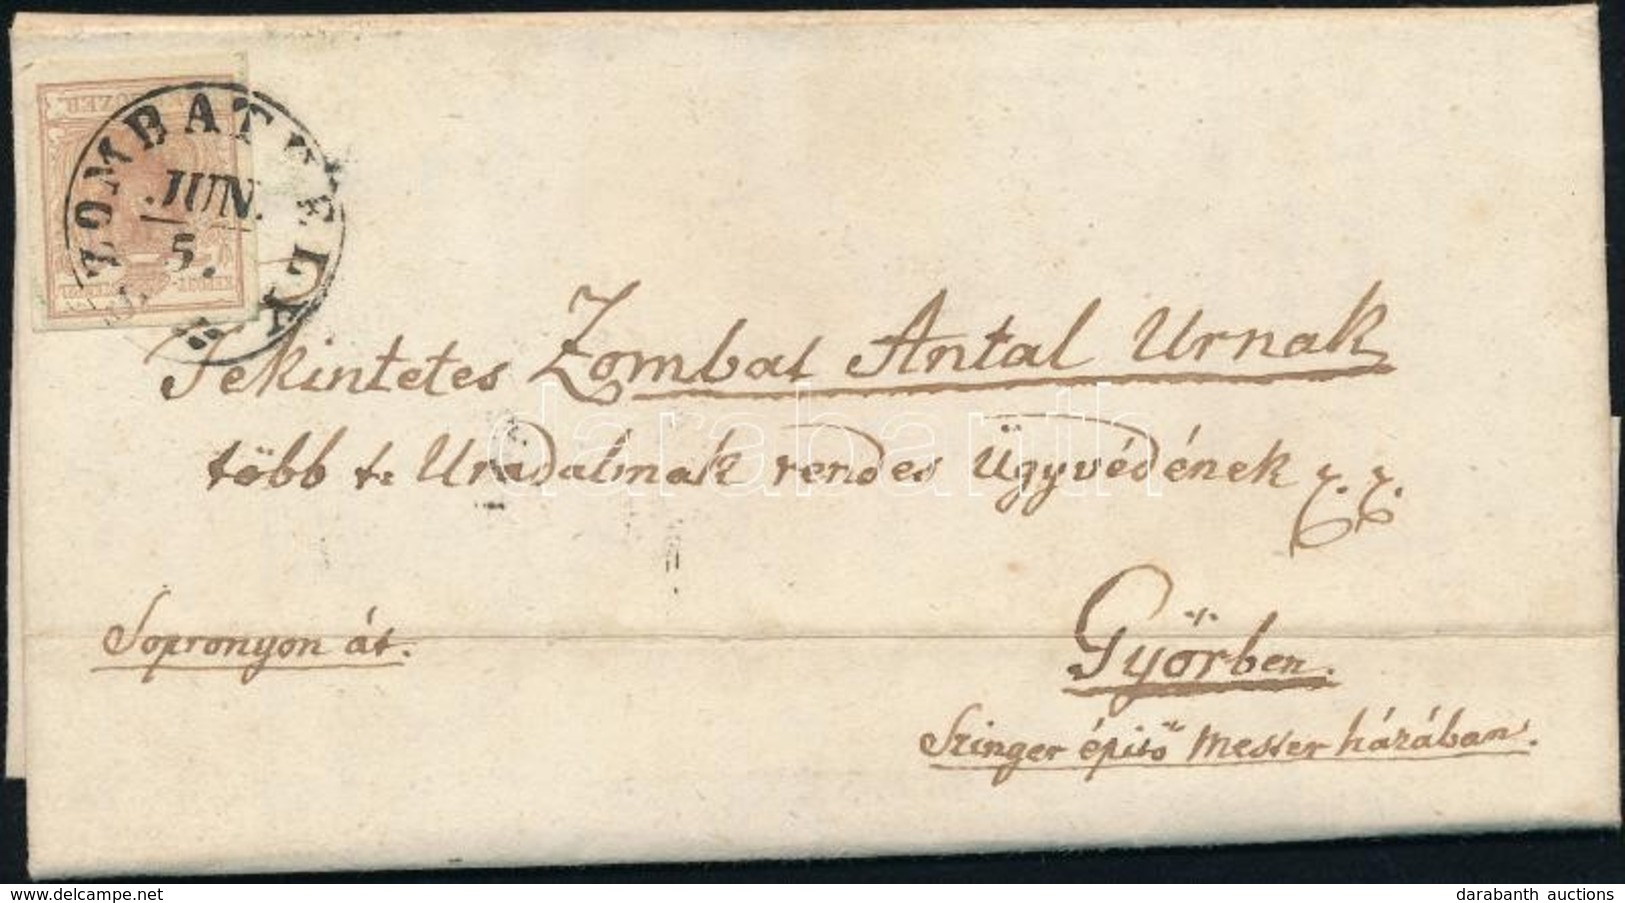 SZOMBATHELY
JUN.
5.
Tekintetes Zombat Antal Urnak
több t: Uradalmak rendes Ügyvédének
Sopronyon át.
Győrben.
Szinger épitő Mester házában.
darabanth
delcampe.net
darabanth auctions